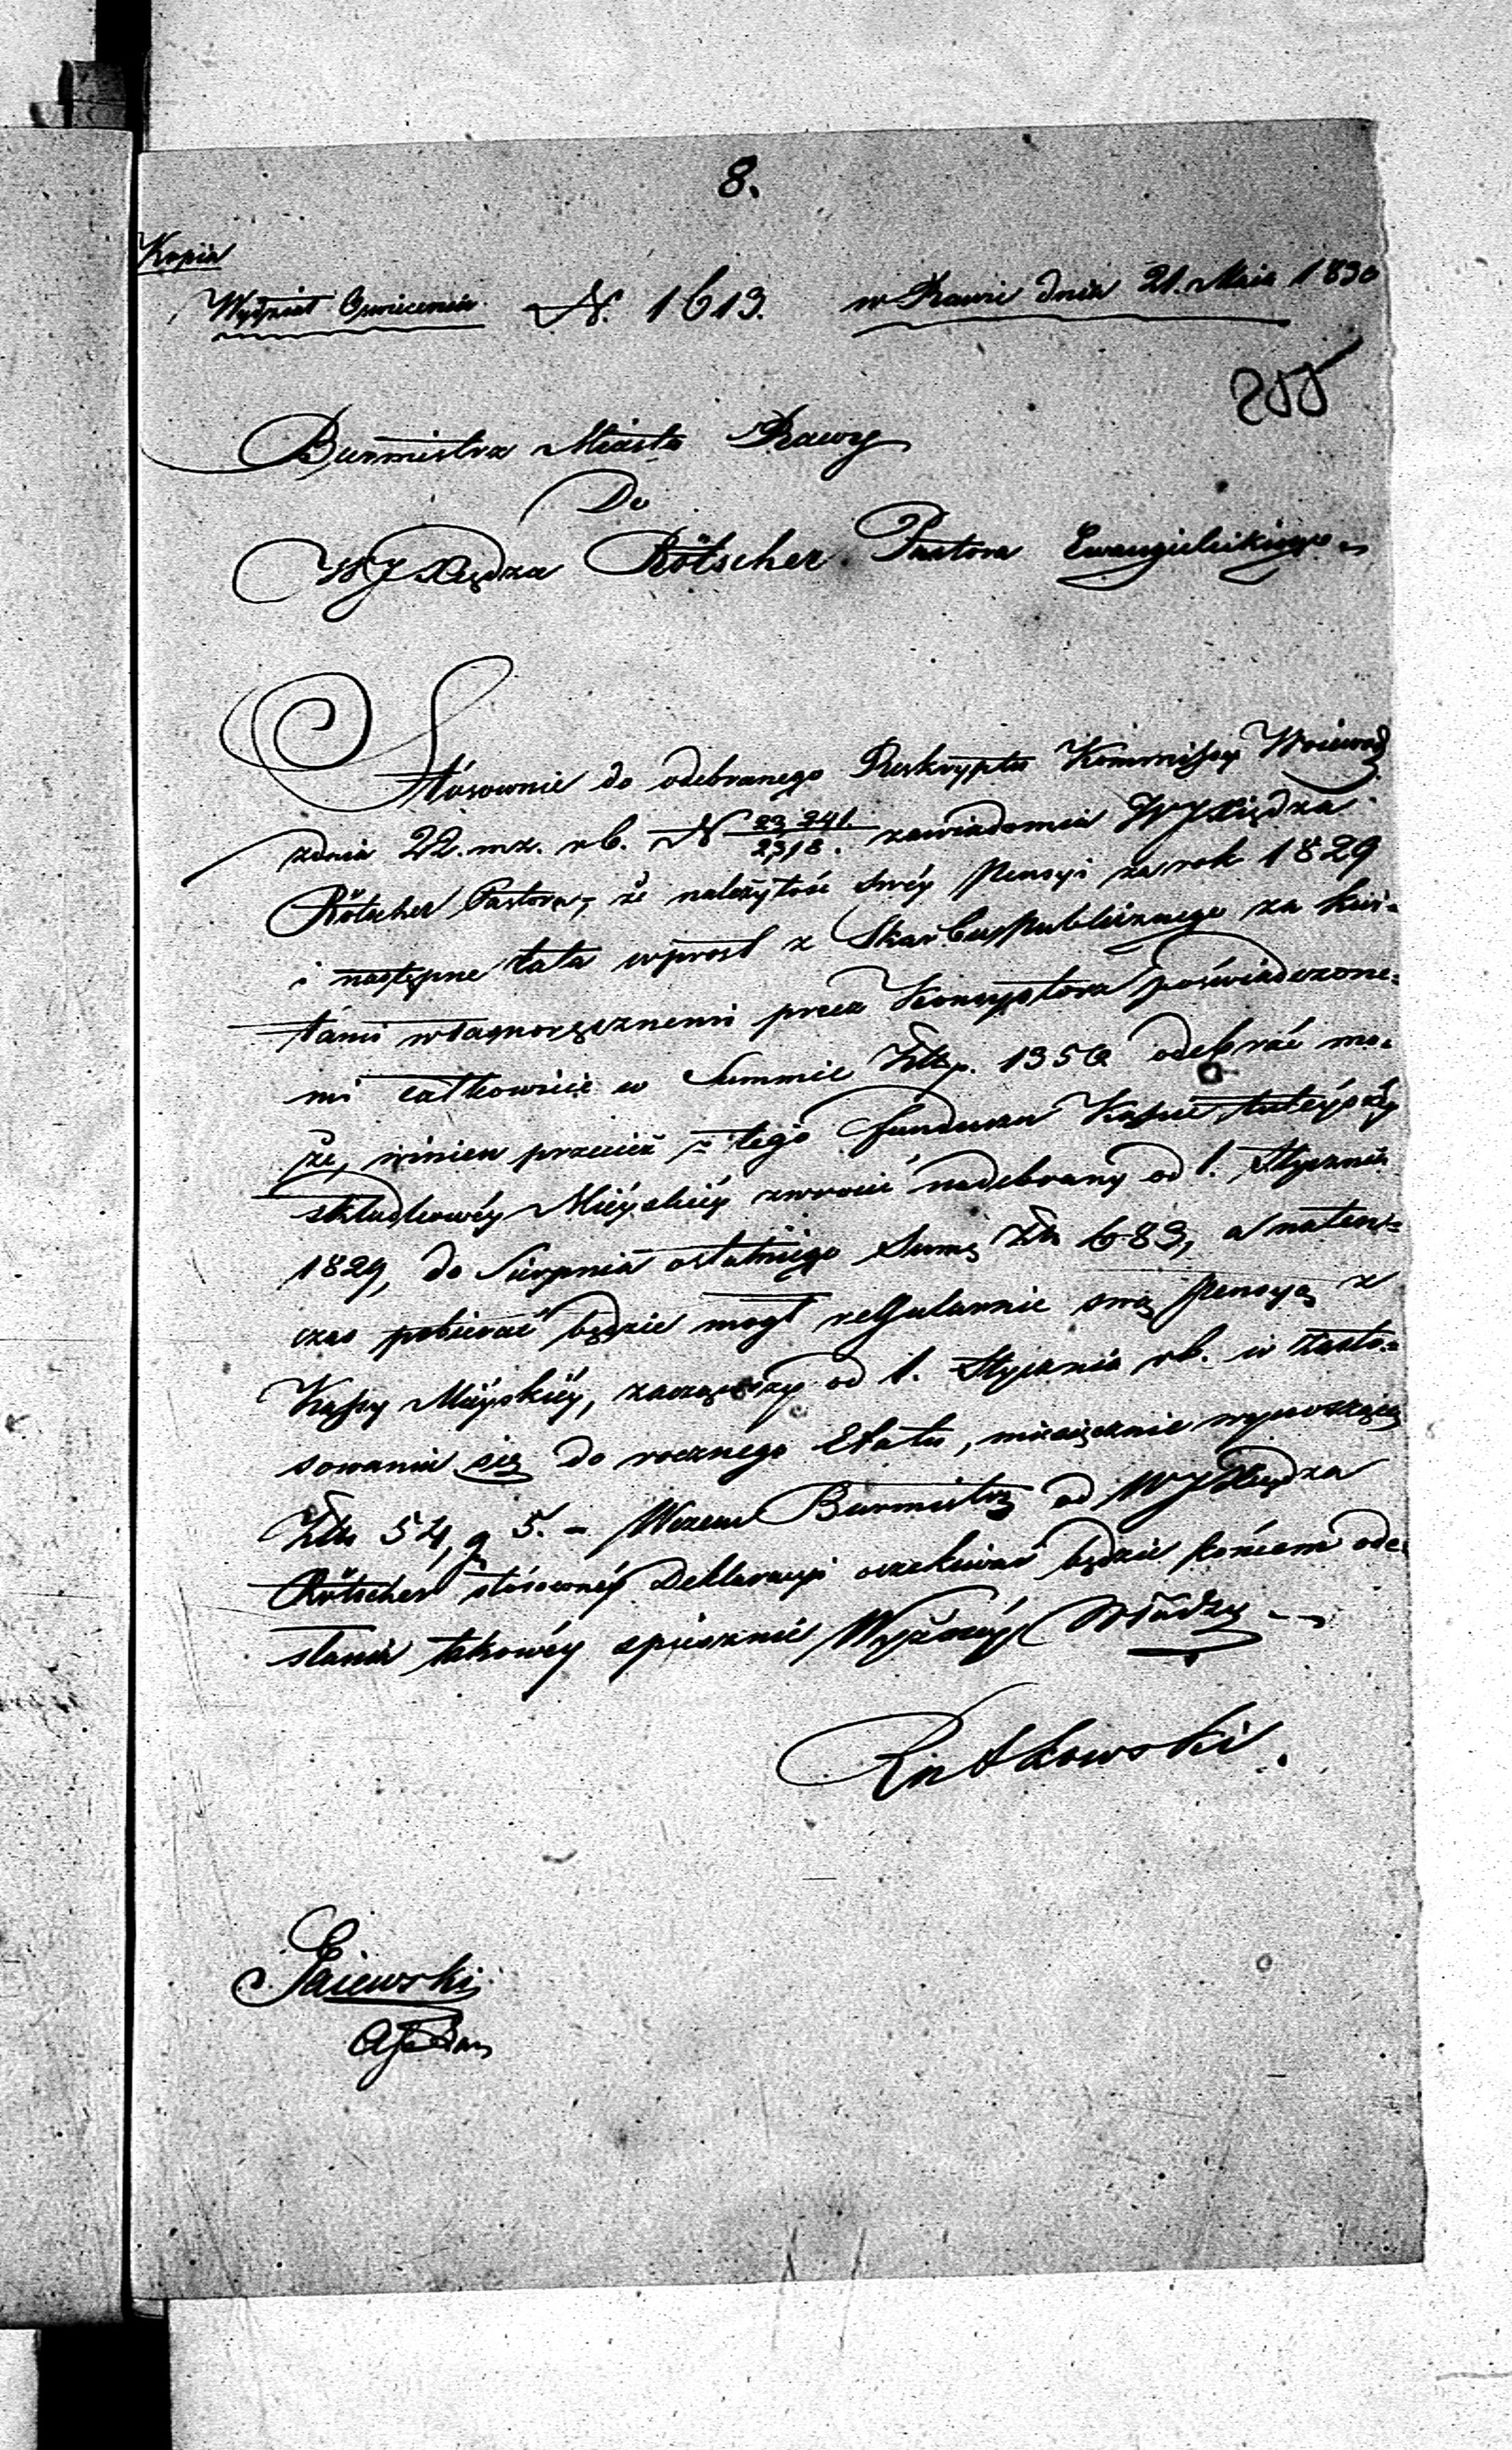 8.
Kopia
Wydział Oswiecenia N. 1613. w Rawie dnia 21. Maia 1830
255
Burmistrz Miasta Rawy
Do
WJ Xiędza Rötscher Pastora Ewangielickiego
Stósownie do odebranego Reskryptu Kommissyi Woiewod
zdnia 22. mz. rb. N 23 241. / 2318. zawiadomia WJ Xiędza
Rötscher Pastora, że należytość swéy Pensyi za rok 1829
i następne lata wprost z Skarbu Publicznego za kwi=
tami własnoręcznemi przez Konsystorz poświadczone=
mi całkowicie w Summie Złtp. 1356 odebrać mo=
że, winien przecież z tego funduszu Kassie tuteyszéy
składkowéy Mieyskiéy zwrocić nadebrany od 1. Stycznia
1829, do Sierpnia ostatniego Sumę Złt 683, a naten=
czas pobierać będzie mogł regularnie swą Pensyą z
Kassy Mieyskiéy, zacząwszy od 1. Stycznia rb. w zasto=
sowaniu się do rocznego Etatu, miesięcznie wynoszącą
Złt 54, g 5. – Wzem Burmistrz od WJ Xiędza
Rötscher stósownéy Deklaracyi oczekiwać będzie końcem ode=
słania takowéy spiesznie Wyższéy Władzy
Rutkowski.
Gaiewski